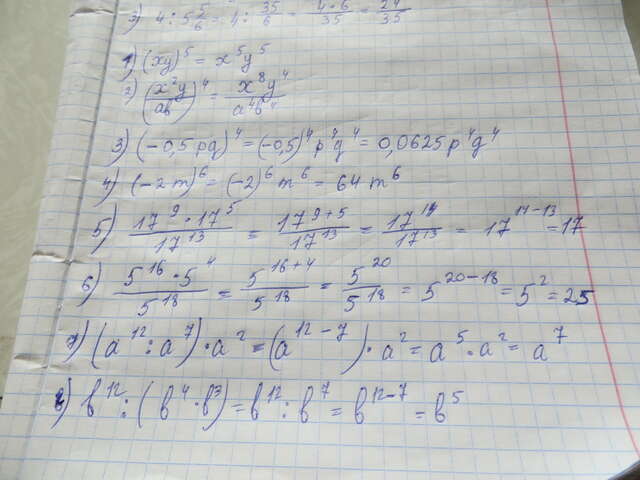 3) 4 : 5 5/6 = 4 : 35/6 = 4·6/35 = 24/35
1) (xy)⁵ = x⁵y⁵
2) (x²y/ab)⁴ = x⁸y⁴/a⁴b⁴
3) (-0,5pq)⁴ = (-0,5)⁴p⁴q⁴ = 0,0625p⁴q⁴
4) (-2m)⁶ = (-2)⁶m⁶ = 64m⁶
5) 17⁹·17⁵/17¹³ = 17⁹⁺⁵/17¹³ = 17¹⁴/17¹³ = 17¹⁴⁻¹³ = 17
6) 5¹⁶·5⁴/5¹⁸ = 5¹⁶⁺⁴/5¹⁸ = 5²⁰/5¹⁸ = 5²⁰⁻¹⁸ = 5² = 25
1) (a¹²:a⁷)·a² = (a¹²⁻⁷)·a² = a⁵·a² = a⁷
2) b¹²:(b⁴·b³) = b¹²:b⁷ = b¹²⁻⁷ = b⁵